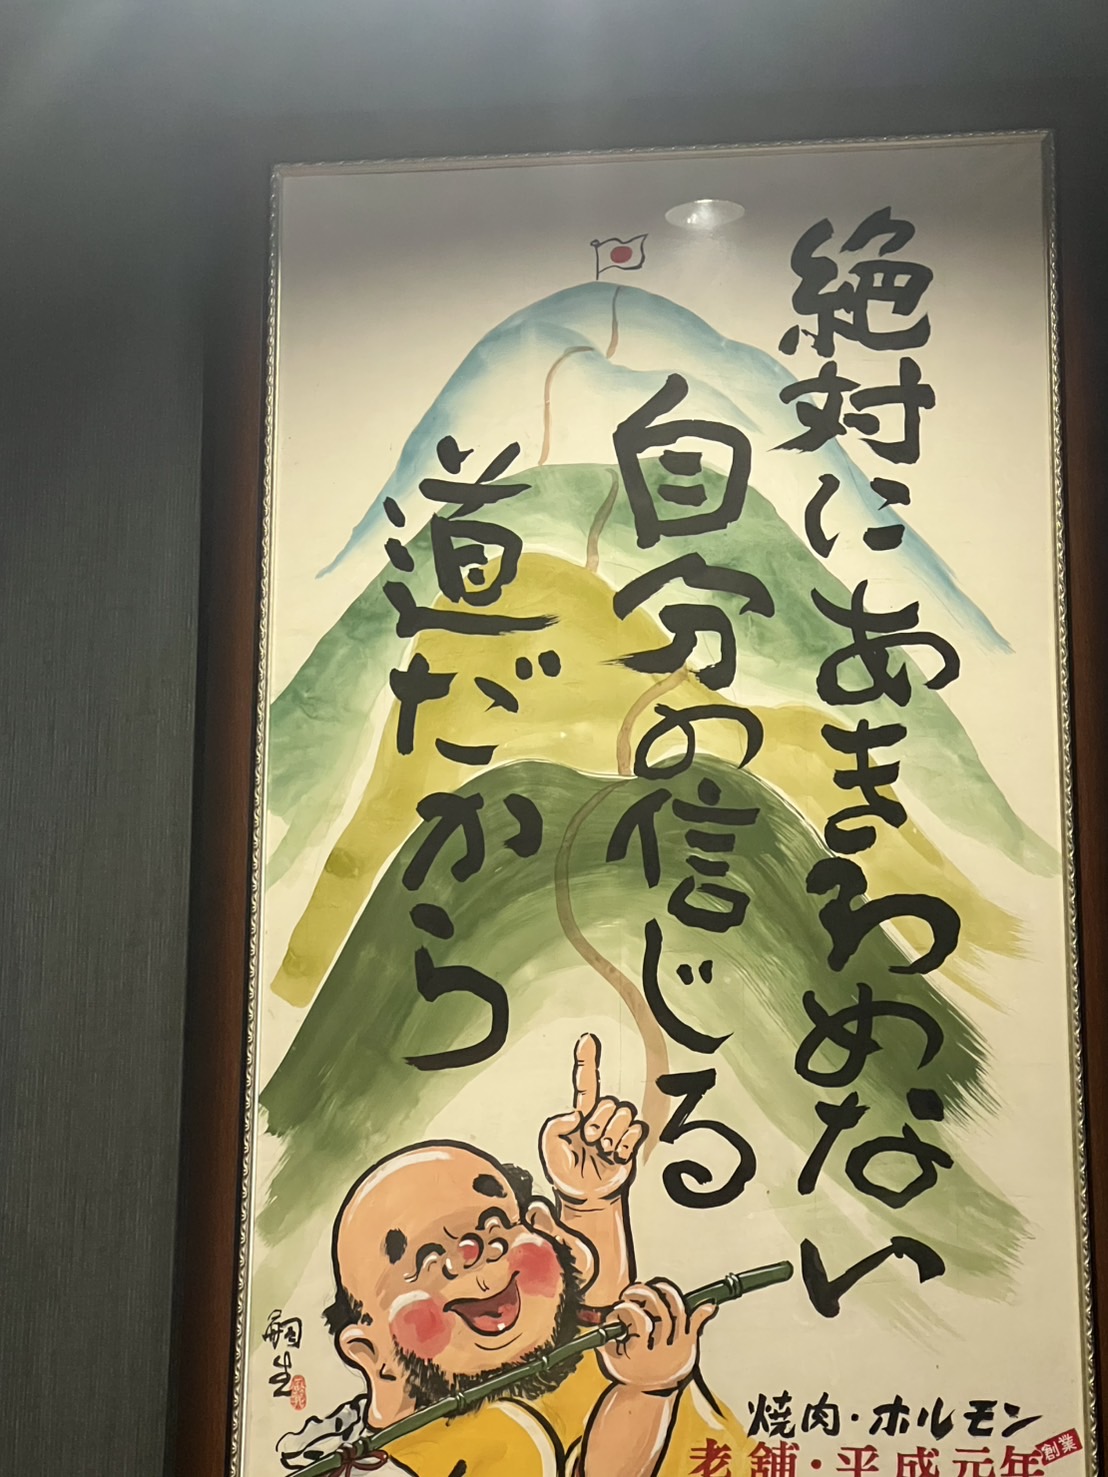 絶対にあきらめない
自分の信じる
道だから
嗣生
焼肉・ホルモン
老舗・平成元年
創業